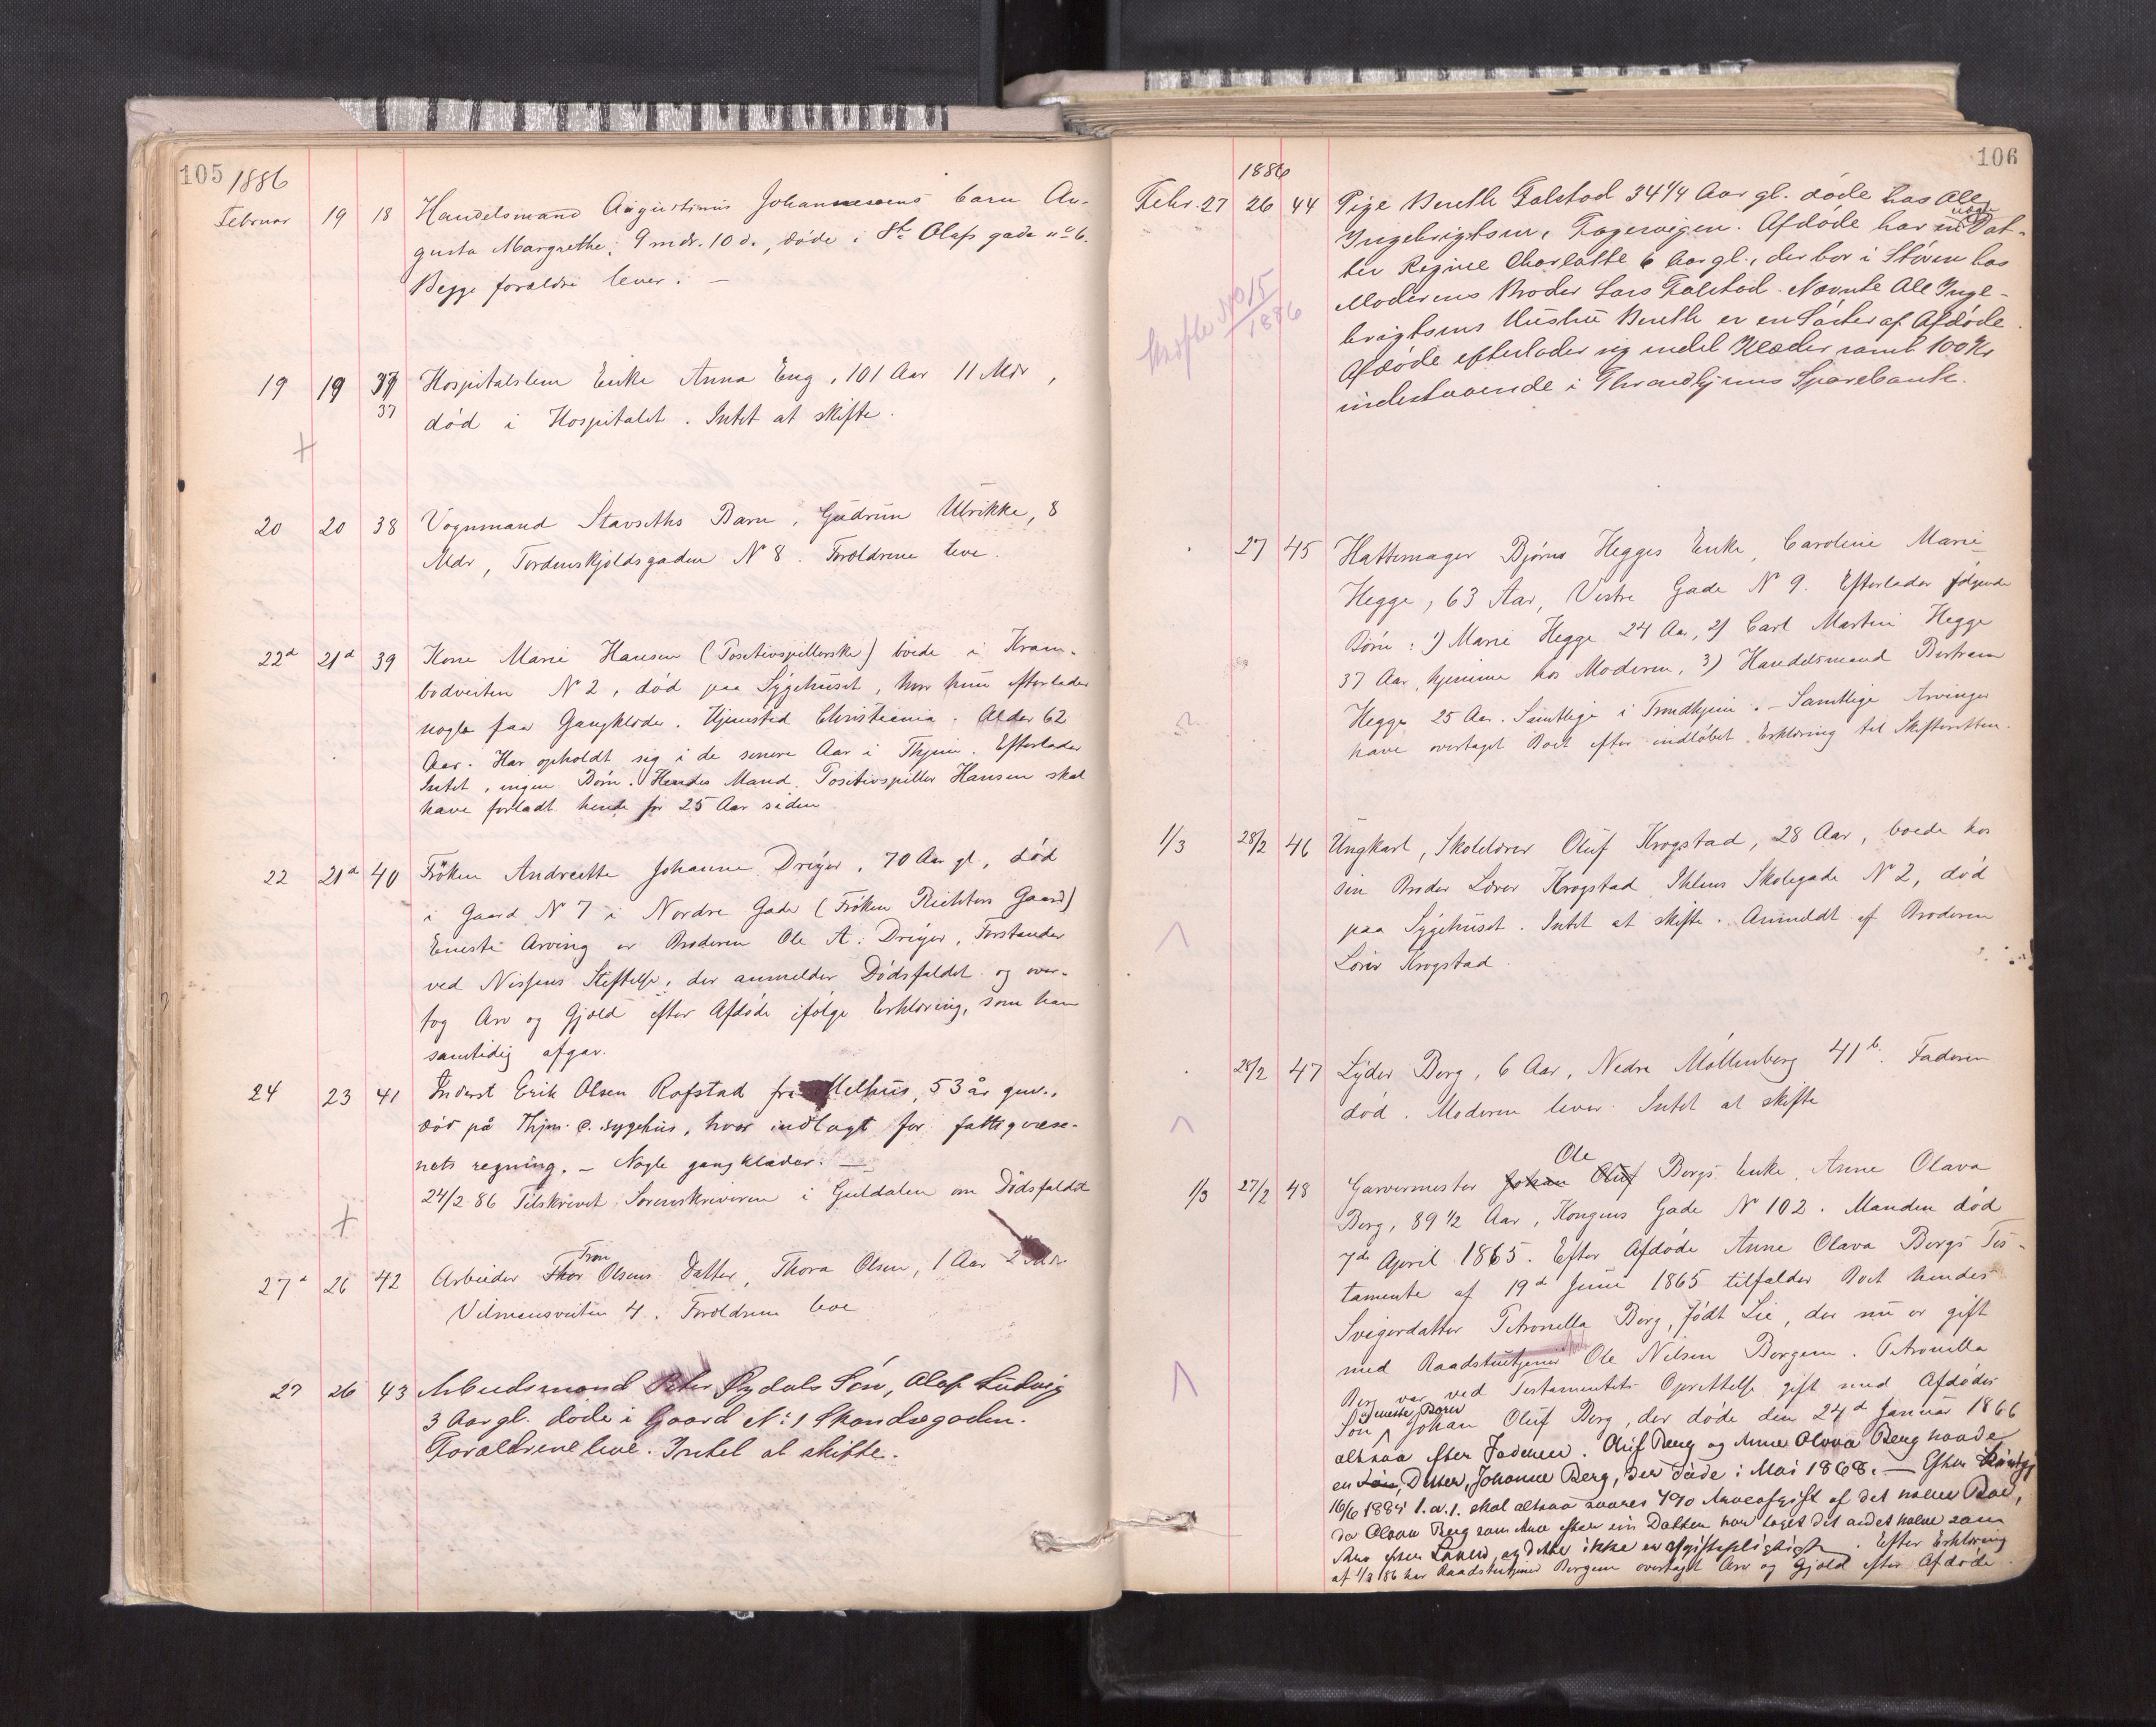 105 1886
Februar 19 18 Handelsmand Augustinus Johannesens barn Au-
gusta Margrethe, 9 mdr. 10 d., døde i St. Olafs gade no 6.
Begge forældre lever. —
19 19 37 Hospitalslem Enke Anna Eng, 101 Aar 11 Mdr,
37
død i Hospitalet. Intet at skifte.
20 20 38 Vognmand Stavseths Barn, Gudrun Ulrikke, 8
Mdr, Tordenskjoldsgaden N 8. Forældrene leve.
22d 21d 39 Kone Marie Hansen (Positivspillerske) boede i Kram-
bodveiten N 2, død paa Sygehuset, hvor hun efterlader
nogle faa Gangklæder. Hjemsted Christiania. Alder 62
Aar. Har opholdt sig i de senere Aar i Thjem. Efterlader
Intet, ingen Børn. Hendes Mand, Positivspiller Hansen skal
have forladt hende for 25 Aar siden
22 21d 40 Frøken Andreette Johanne Dreyer, 70 Aar gl., død
i Gaard N 7 i Nordre Gade (Frøken Richters Gaard)
Eneste Arving er Broderen Ole A. Dreyer, Forstander
ved Nissens Stiftelse, der anmelder Dødsfaldet og over-
tog Arv og Gjæld efter Afdøde ifølge Erklæring, som han
samtidig afgav.
24 23 41 Inderst Erik Olsen Rofstad fra Melhus, 53 år gm.,
død på Thjms. c. sygehus, hvor indlagt for fattigvæse-
nets regning. — Nogle gangklæder. —
24/2 86 Tilskrevet Sorenskriveren i Guldalen om Dødsfaldet
Tron
27d 26 42 Arbeider Thor Olsens Datter, Thora Olsen, 1 Aar 2 Mdr
Vilmansveiten 4. Forældrene leve
27 26 43 Arbeidsmand Peter Øydals Søn, Olaf Ludvig
3 Aar gl. døde i Gaard No 1 Skandsegaden.
Forældrene leve. Intet at skifte.
106
1886
Febr. 27 26 44 Pige Berethe Falstad 34 1/4 Aar gl. døde hos Ole
Ingebrigtsen, Fagervigen. Afdøde har en uægte Dat-
ter Regine Charlotte 6 Aar gl., der bor i Støren hos
Moderens Broder Lars Falstad. Nævnte Ole Inge-
brigtsens Hustru Berethe er en Søster af Afdøde.
Afdøde efterlader sig endel Klæder samt 100 Kr
indestaaende i Throndhjems Sparebank.
Skifte No 15/1886
27 45 Hattemager Bjørns Hegges Enke, Caroline Marie
Hegge, 63 Aar, Vestre Gade N 9. Efterlader følgende
Børn: 1) Marie Hegge 24 Aar, 2) Carl Martin Hegge
37 Aar, hjemme hos Moderen, 3) Handelsmand Bertram
Hegge 25 Aar. Samtlige i Trondhjem. — Samtlige Arvinger
have overtaget Boet efter indløbet Erklæring til Skifteretten.
1/3 28/2 46 Ungkarl, Skolelærer Oluf Krogstad, 28 Aar, boede hos
sin Broder Lærer Krogstad Ihlens Skolegade N 2, død
paa Sygehuset. Intet at skifte. Anmeldt af Broderen
Lærer Krogstad
28/2 47 Lyder Berg, 6 Aar, Nedre Møllenberg 41 b. Faderen
død. Moderen lever. Intet at skifte
Ole
1/3 27/2 48 Garvermester Johan Oluf Bergs Enke, Anne Olava
Berg, 89 1/2 Aar, Kongens Gade N 102. Manden død
7d April 1865. Efter Afdøde Anne Olava Bergs Tes-
tamente af 19d Juni 1865 tilfalder Boet hendes
Svigerdatter Petronella Berg, født Lie, der nu er gift
med Raadstutjener Ole Nilsen Borgen. Petronella
Berg var ved Testamentets Oprettelse gift med Afdødes
eneste Barn
Søn Johan Oluf Berg, der døde den 24d Januar 1866
altsaa efter Faderen. Oluf Berg og Anne Olava Berg havde
en Søn, Datter, Johanne Berg, der døde i Mai 1868. — Efter
16/6 1884 1.a.1. skal altsaa svares 4% Arveafgift af det halve Boe,
da Olava Berg som Arv efter sin Datter har taget det andet halve som
Arv efter , og dette ikke er afgiftspligtigt. Efter Erklæring
af 1/3 86 har Raadstutjener Borgen overtaget Arv og Gjæld efter Afdøde.